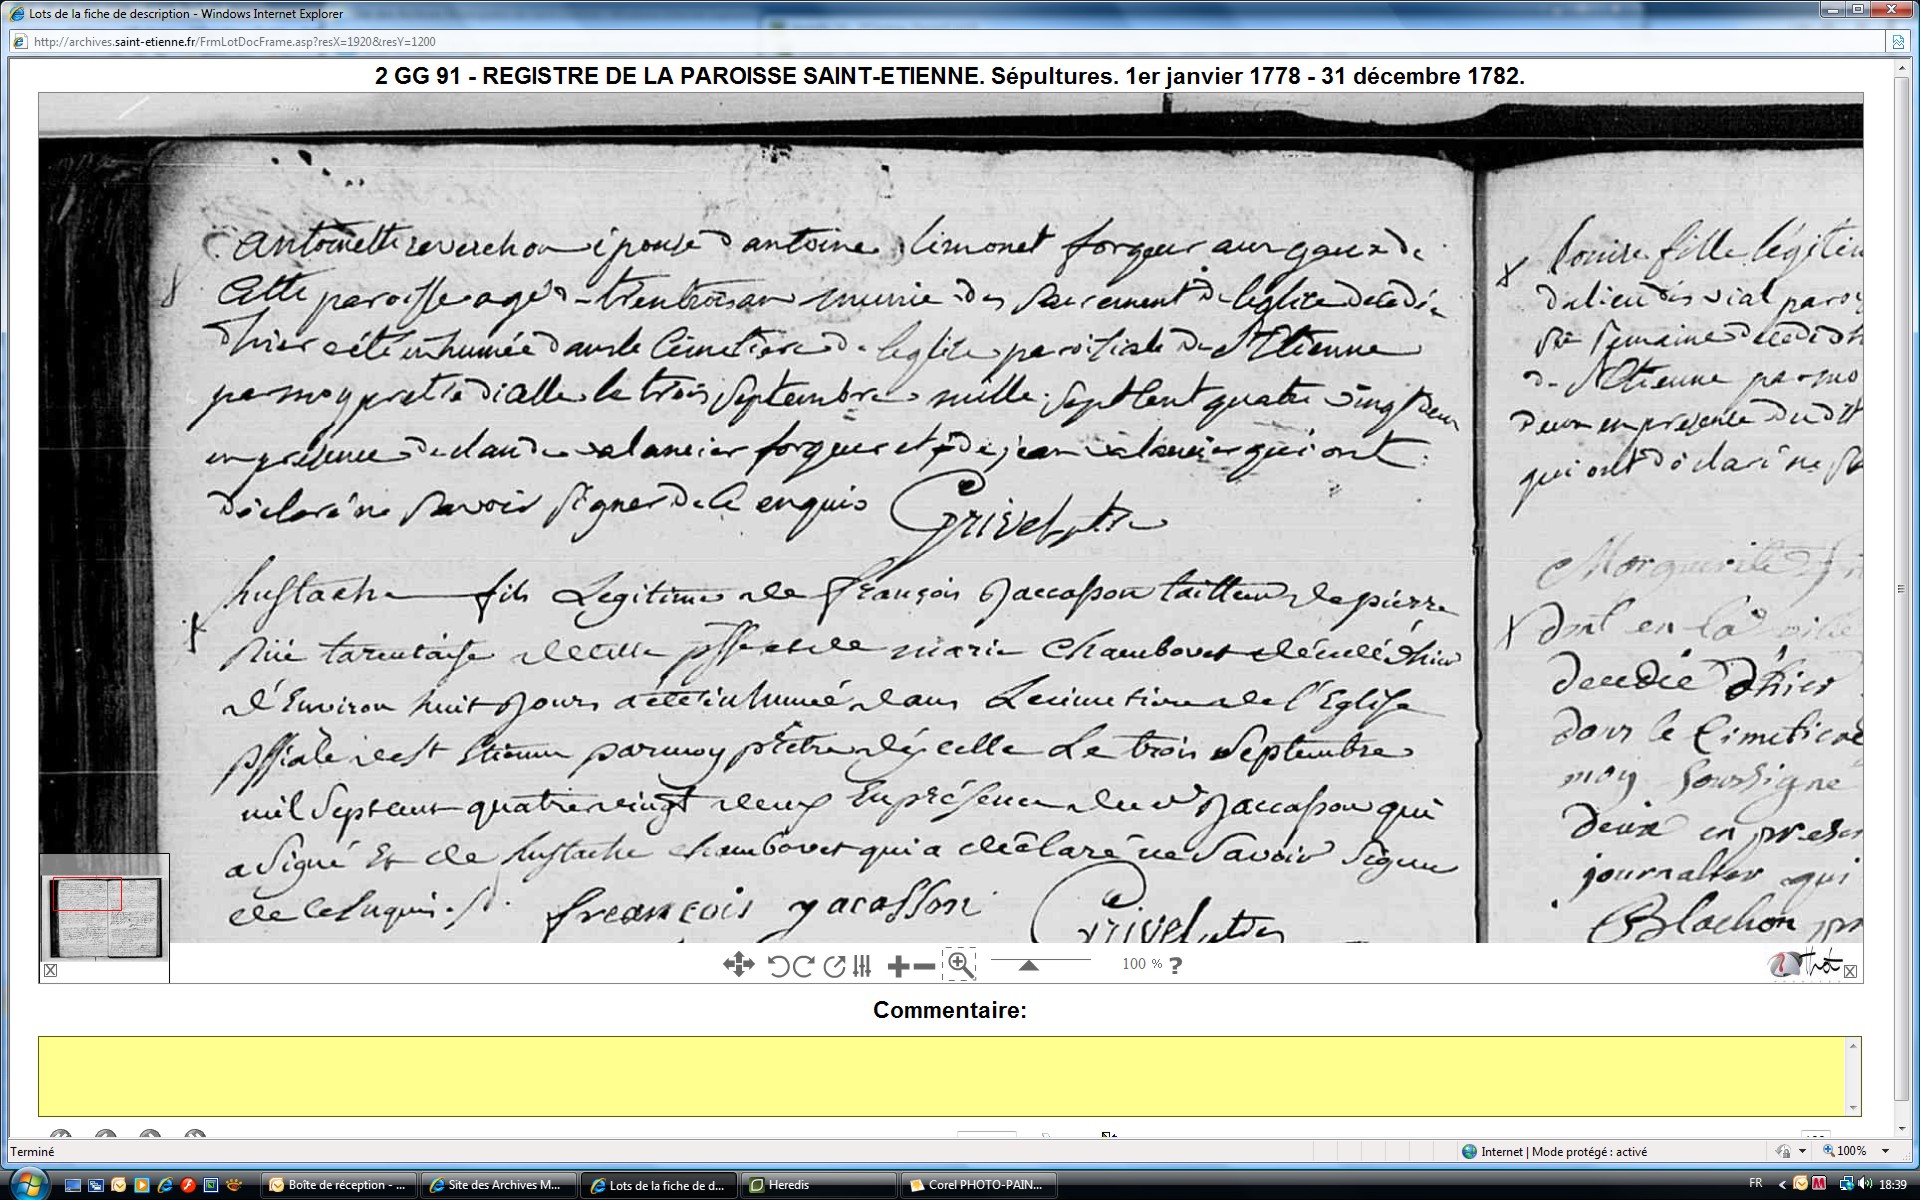 Lots de la fiche de description - Windows Internet Explorer
http://archives.saint-etienne.fr/FrmLotDocFrame.asp?resX=1920&resY=1200
2 GG 91 - REGISTRE DE LA PAROISSE SAINT-ETIENNE. Sépultures. 1er janvier 1778 - 31 décembre 1782.
antoinette reverchon épouse d antoine limonet forgeur aux gaux de
cette paroisse agée de trente trois an munie des sacrement de léglise décédée
d'hier a été inhumée dans le Cimetiere de léglise paroissiale de St Etienne
par moy pretre dicelle le trois septembre mille sept cent quatre vingt deux
en présence de claude valancier forgeur et de jean valancier qui ont
déclaré ne savoir signer de ce enquis Grivel ptre
hustache fils Legitime de françois Jaccasson tailleur de pierre
rüe tarentaise de cette psse et de marie Chambovet décédé d'hier
d'Environ huit Jours a été inhumé dans Le cimetiere de l'Eglise
pssiale de st Etienne par moy prêtre d'ycelle Le trois Septembre
mil Sept cent quatre vingt deux En présence du dt Jaccasson qui
a Signé Et de hustache chambovet qui a déclaré ne Savoir Signer
de ce Enquis
françois yacasson
Grivel ptre
Louise fille légitim
de
ste semaine décédé d'h
de St Etienne par mo
deux en presence du dt
qui ont déclaré ne s
Marguerite
dmt en la ville
decedée d'hier
dans le Cimetiere
moy soussigné
deux en presen
journalier qui
Blachon
100 % ?
Commentaire:
Terminé
Internet | Mode protégé : activé
100%
Boîte de réception - ...
Site des Archives M...
Lots de la fiche de d...
Heredis
Corel PHOTO-PAIN...
FR
18:39